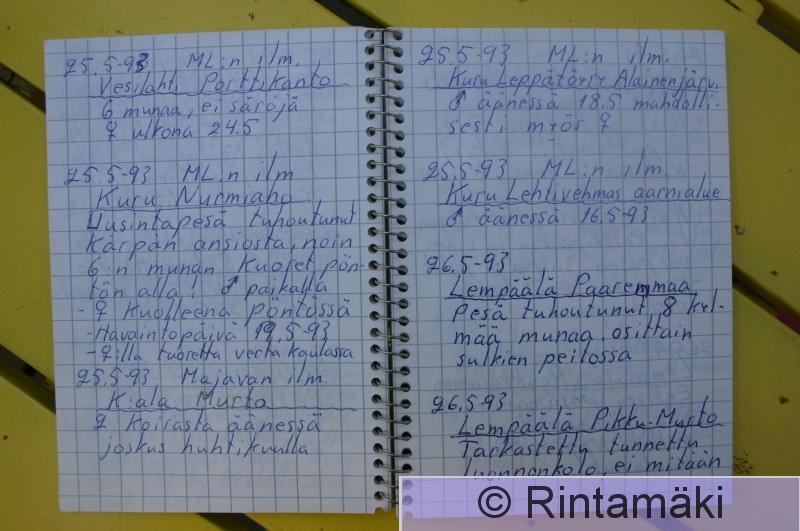 25.5-93 ML:n ilm.
Vesilahti Porttikanto
6 munaa, ei säröjä
♀ ulkona 24.5
25.5-93 ML:n ilm
Kuru Nurmiaho
Uusintapesä tuhoutunut
Kärpän ansiosta, noin
6:n munan kuoret pön-
tön alla! ♂ paikalla
- ♀ kuolleena pöntössä
-Havaintopäivä 19.5-93
-♀:illa tuoretta verta kaulassa
25.5-93 Majavan ilm.
K:ala Murto
2 koirasta äänessä
joskus huhtikuulla
25.5-93 ML:n ilm.
Kuru Leppätörry Alainenjärvi
♂ äänessä 18.5 mahdolli-
sesti myös ♀
25.5-93 ML:n ilm.
Kuru Lehtivehmas aarnialue
♂ äänessä 16.5-93
26.5-93
Lempäälä Paaremmaa
Pesä tuhoutunut 8 kyl-
mää munaa osittain
sulkien peitossa
26.5-93
Lempäälä Pikku-Murto
Tarkastettu tunnettu
luonnonkolo, ei mitään
© Rintamäki